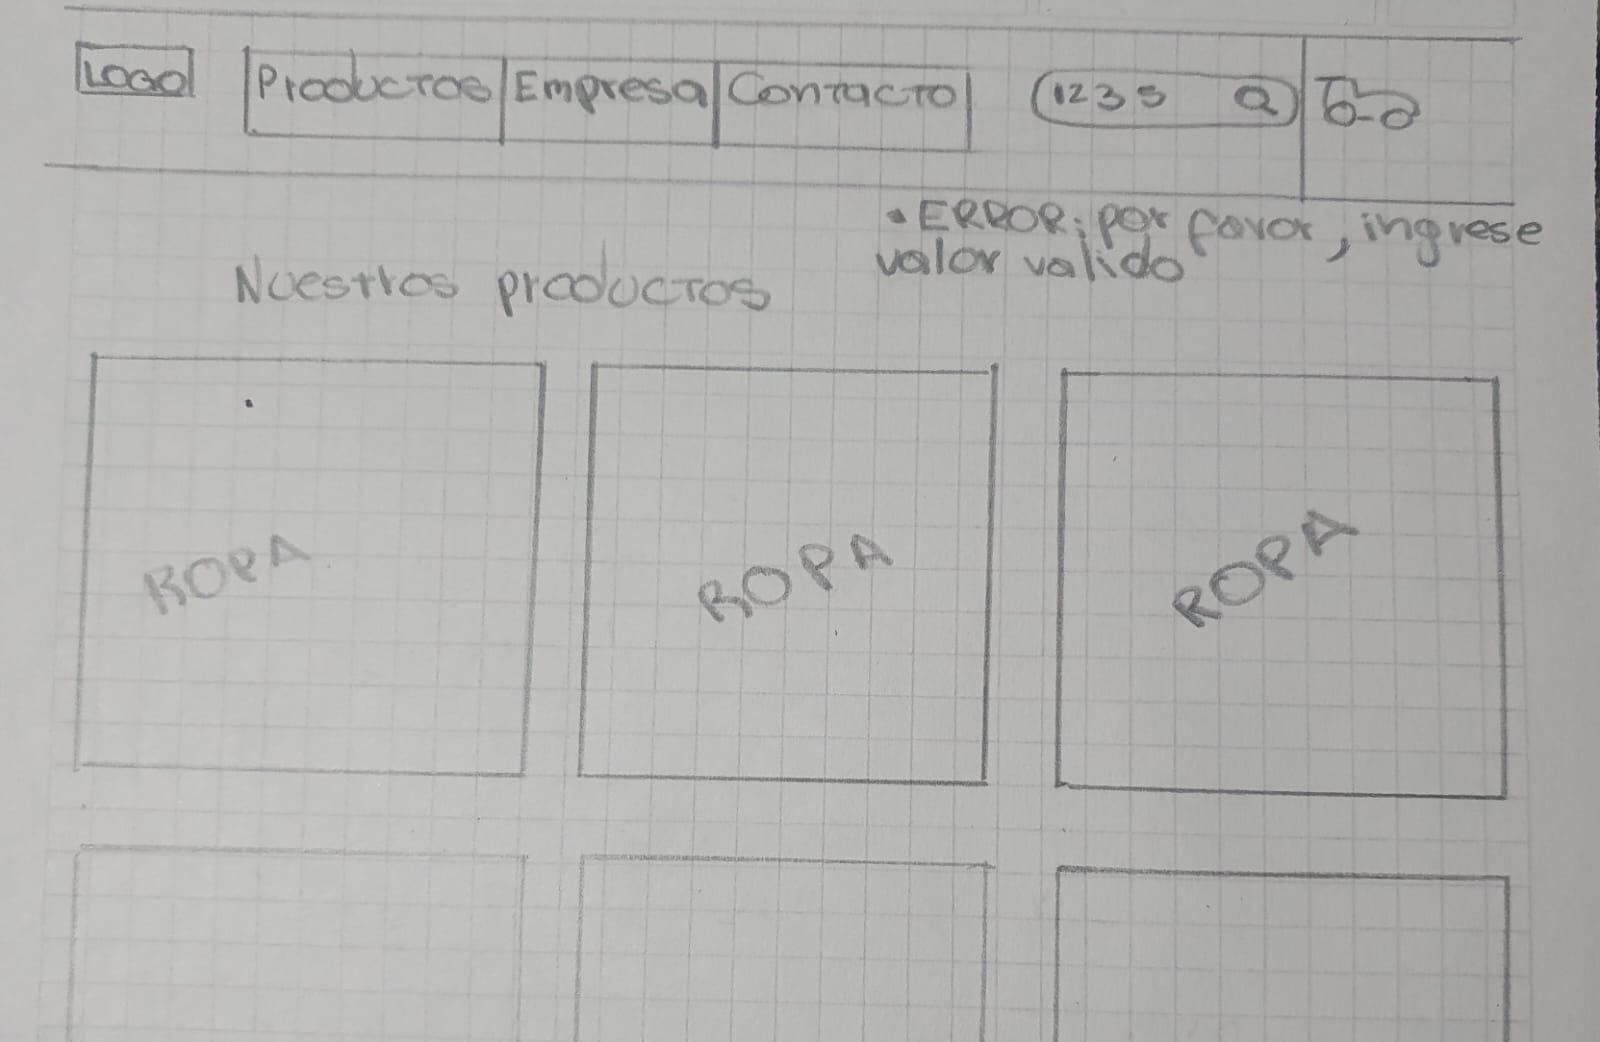 LOGO Productos Empresa Contacto 1235
• ERROR: por favor, ingrese
valor valido
Nuestros productos
ROPA ROPA ROPA